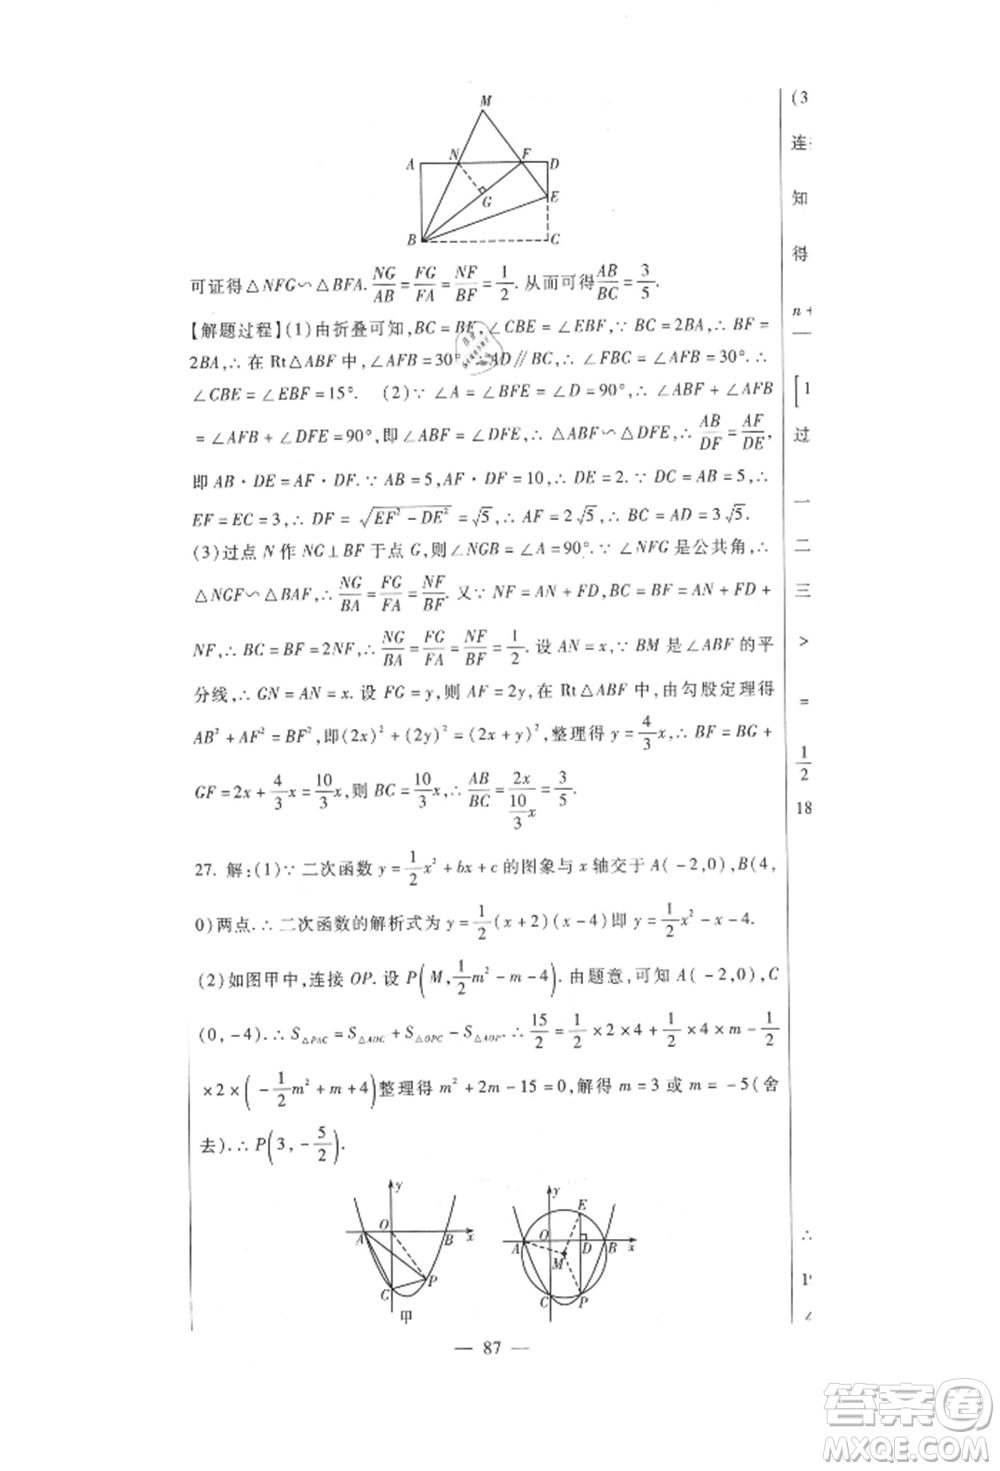 M
A N F D
G E
B C
可证得△NFG∽△BFA. NG/AB = FG/FA = NF/BF = 1/2. 从而可得 AB/BC = 3/5.
【解题过程】(1)由折叠可知, BC = BF, ∠CBE = ∠EBF, ∵ BC = 2BA, ∴ BF =
2BA, ∴ 在 Rt△ABF 中, ∠AFB = 30°. AD∥BC. ∴ ∠CBF = ∠AFB = 30°. ∴
∠CBE = ∠EBF = 15°. (2)∵ ∠A = ∠BFE = ∠D = 90°, ∴ ∠ABF + ∠AFB
= ∠AFB + ∠DFE = 90°, 即 ∠ABF = ∠DFE, ∴ △ABF∽△DFE, ∴ AB/DF = AF/DE,
即 AB · DE = AF · DF. ∵ AB = 5, AF · DF = 10, ∴ DE = 2. ∵ DC = AB = 5, ∴
EF = EC = 3, ∴ DF = √(EF² - DE²) = √5, ∴ AF = 2√5, ∴ BC = AD = 3√5.
(3)过点 N 作 NG⊥BF 于点 G, 则∠NGB = ∠A = 90°. ∵ ∠NFG 是公共角, ∴
△NGF∽△BAF, ∴ NG/BA = FG/FA = NF/BF. 又∵ NF = AN + FD, BC = AN + FD +
NF, ∴ BC = BF = 2NF, ∴ NG/BA = FG/FA = NF/BF = 1/2. 设 AN = x, ∵ BM 是∠ABF 的平
分线, ∴ GN = AN = x. 设 FG = y, 则 AF = 2y, 在 Rt△ABF 中, 由勾股定理得
AB² + AF² = BF², 即(2x)² + (2y)² = (2x + y)², 整理得 y = 4/3 x, ∴ BF = BG +
GF = 2x + 4/3 x = 10/3 x, 则 BC = 10/3 x, ∴ AB/BC = 2x/(10/3 x) = 3/5.
27. 解:(1)∵ 二次函数 y = 1/2 x² + bx + c 的图象与 x 轴交于 A(-2,0), B(4,
0)两点. ∴ 二次函数的解析式为 y = 1/2 (x + 2)(x - 4) 即 y = 1/2 x² - x - 4.
(2)如图甲中, 连接 OP. 设 P(M, 1/2 m² - m - 4). 由题意, 可知 A(-2,0), C
(0, -4). ∴ S△PAC = S△AOC + S△OPC - S△AOP. ∴ 15/2 = 1/2 ×2×4 + 1/2 ×4×m - 1/2
×2×(-1/2 m² + m + 4) 整理得 m² + 2m - 15 = 0, 解得 m = 3 或 m = -5(舍
去). ∴ P(3, -5/2).
y
A O B x
C P
甲
y
E
A O D B x
M
C P
— 87 —
(3
连
知
得
n +
[1
过
一
二
三
>
=
1/2
18
∴
∠
答案圈
MXQE.COM